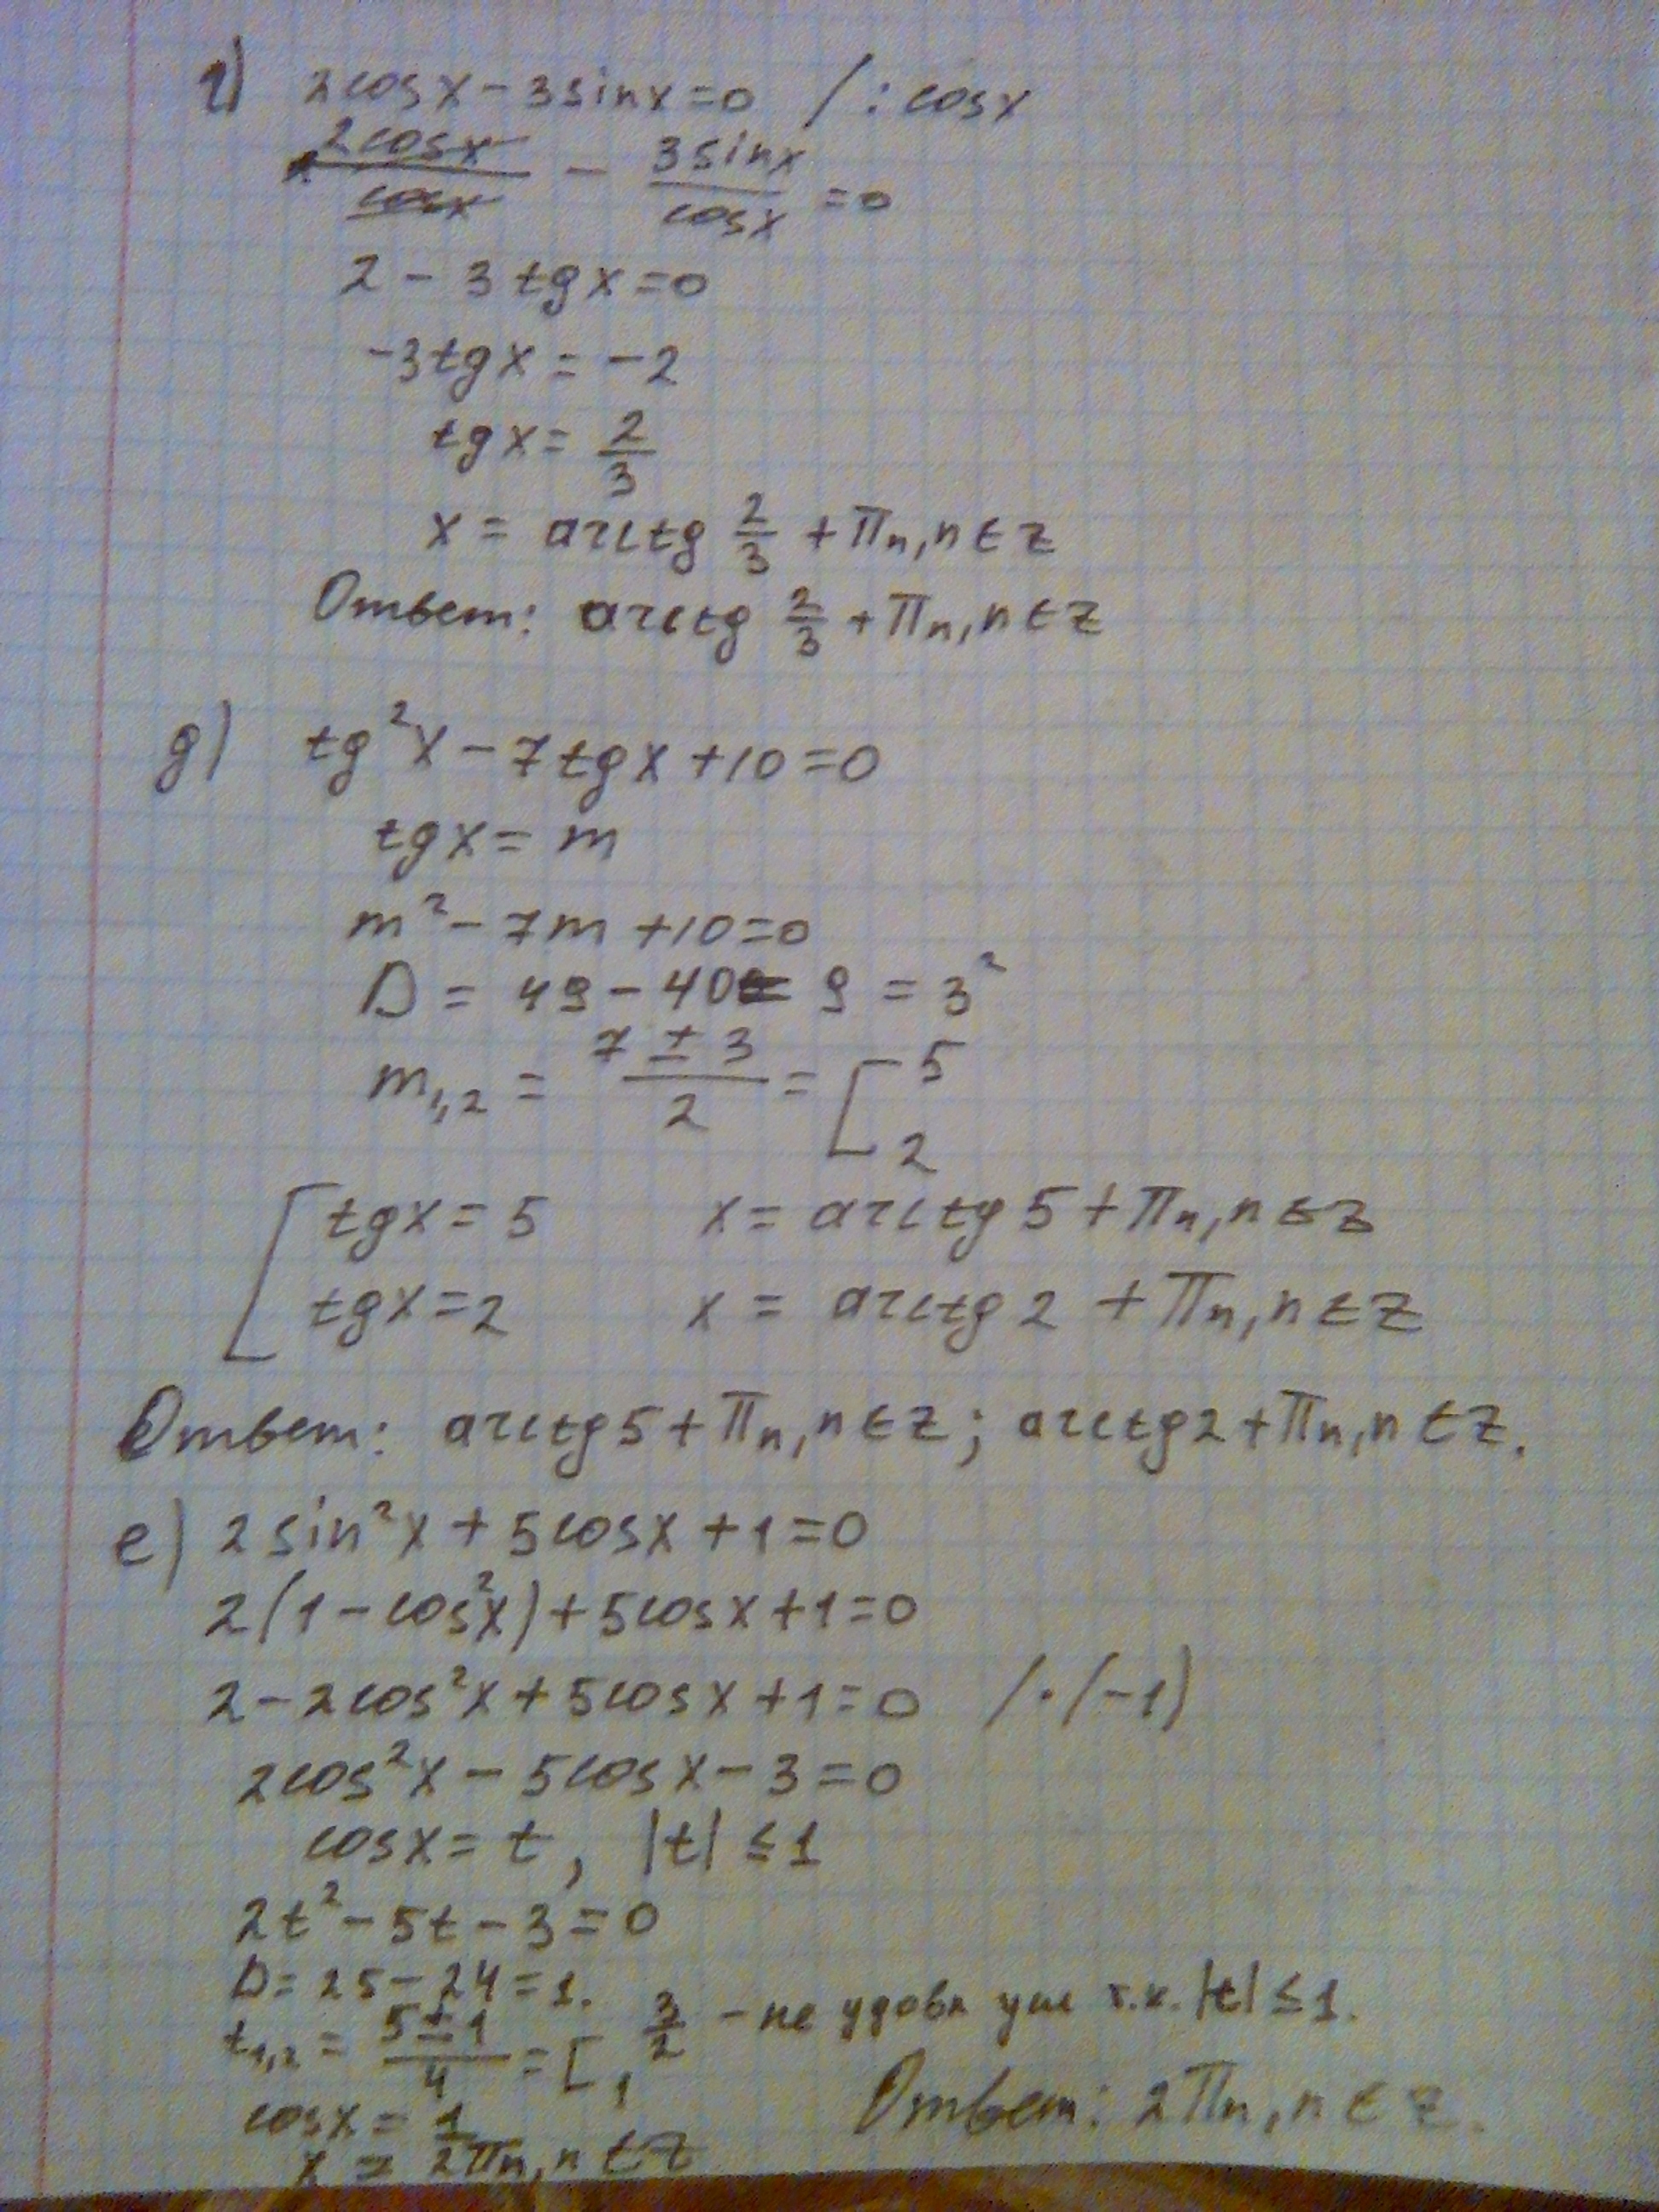 г) 2cosx - 3sinx = 0 /: cosx
2cosx/cosx - 3sinx/cosx = 0
2 - 3tgx = 0
-3tgx = -2
tgx = 2/3
x = arctg 2/3 + πn, n ∈ Z
Ответ: arctg 2/3 + πn, n ∈ Z
g) tg²x - 7tgx + 10 = 0
tgx = m
m² - 7m + 10 = 0
D = 49 - 40 = 9 = 3²
m₁,₂ = (7 ± 3)/2 = [ 5
2
[ tgx = 5 x = arctg 5 + πn, n ∈ Z
tgx = 2 x = arctg 2 + πn, n ∈ Z
Ответ: arctg 5 + πn, n ∈ Z; arctg 2 + πn, n ∈ Z.
е) 2sin²x + 5cosx + 1 = 0
2(1 - cos²x) + 5cosx + 1 = 0
2 - 2cos²x + 5cosx + 1 = 0 /·(-1)
2cos²x - 5cosx - 3 = 0
cosx = t, |t| ≤ 1
2t² - 5t - 3 = 0
D = 25 - 24 = 1.
t₁,₂ = (5 ± 1)/4 = [ 3/2 - не удовл усл т.к. |t| ≤ 1.
1
cosx = 1
x = 2πn, n ∈ Z
Ответ: 2πn, n ∈ Z.